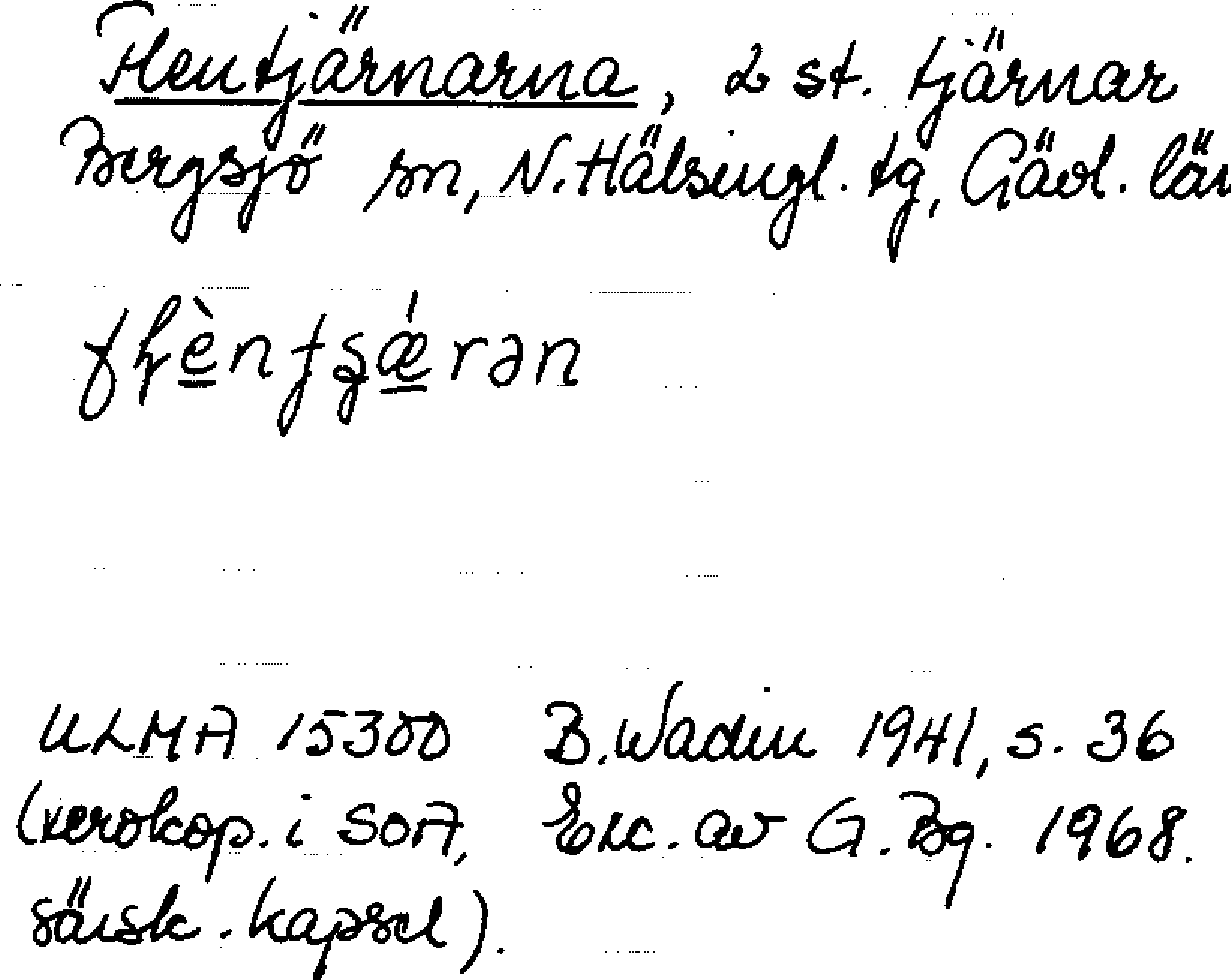 Flentjärnarna, 2 st. tjärnar
Bergsjö sn, N. Hälsingl. tg, Gävl. län
ULMA 15300 B. Wadin 1941, s. 36
(xerokop. i SOA, Exc. av G. Bg. 1968.
särsk. kapsel).